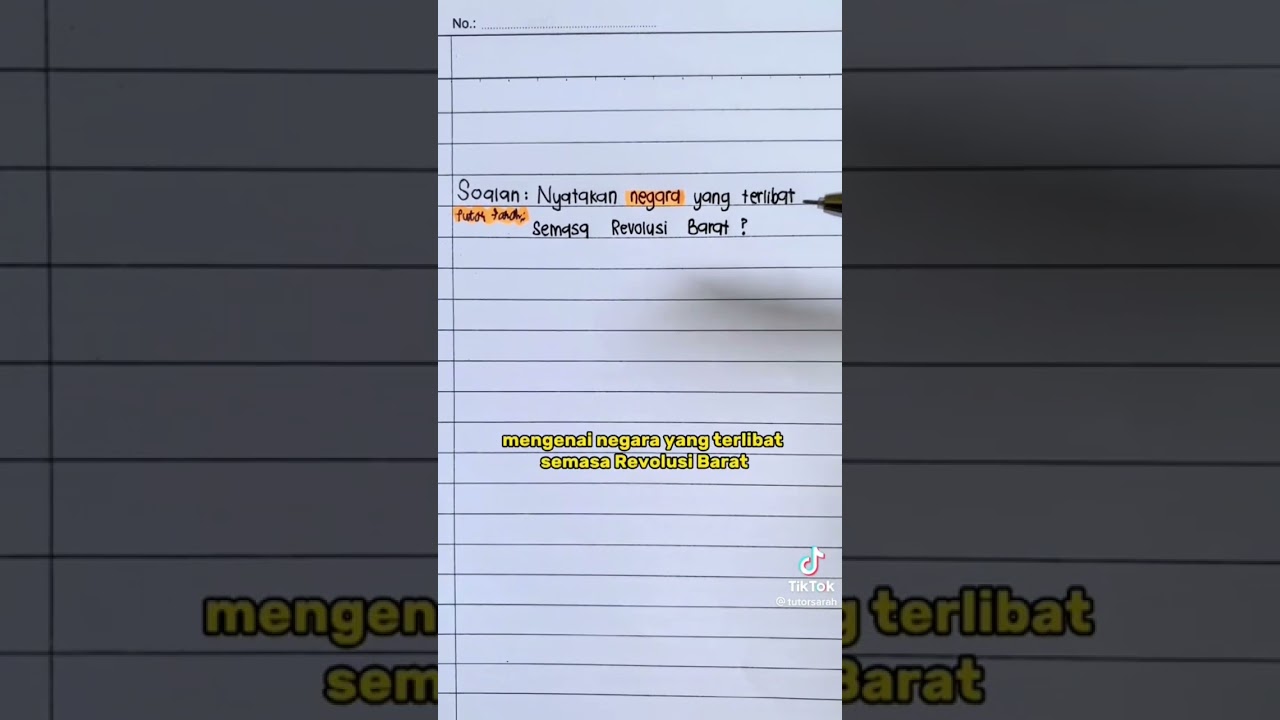 No.:
Soalan: Nyatakan negara yang terlibat
tutor sarah:
semasa Revolusi Barat?
mengenai negara yang terlibat
semasa Revolusi Barat
TikTok
@tutorsarah
mengen
g terlibat
sem
Barat